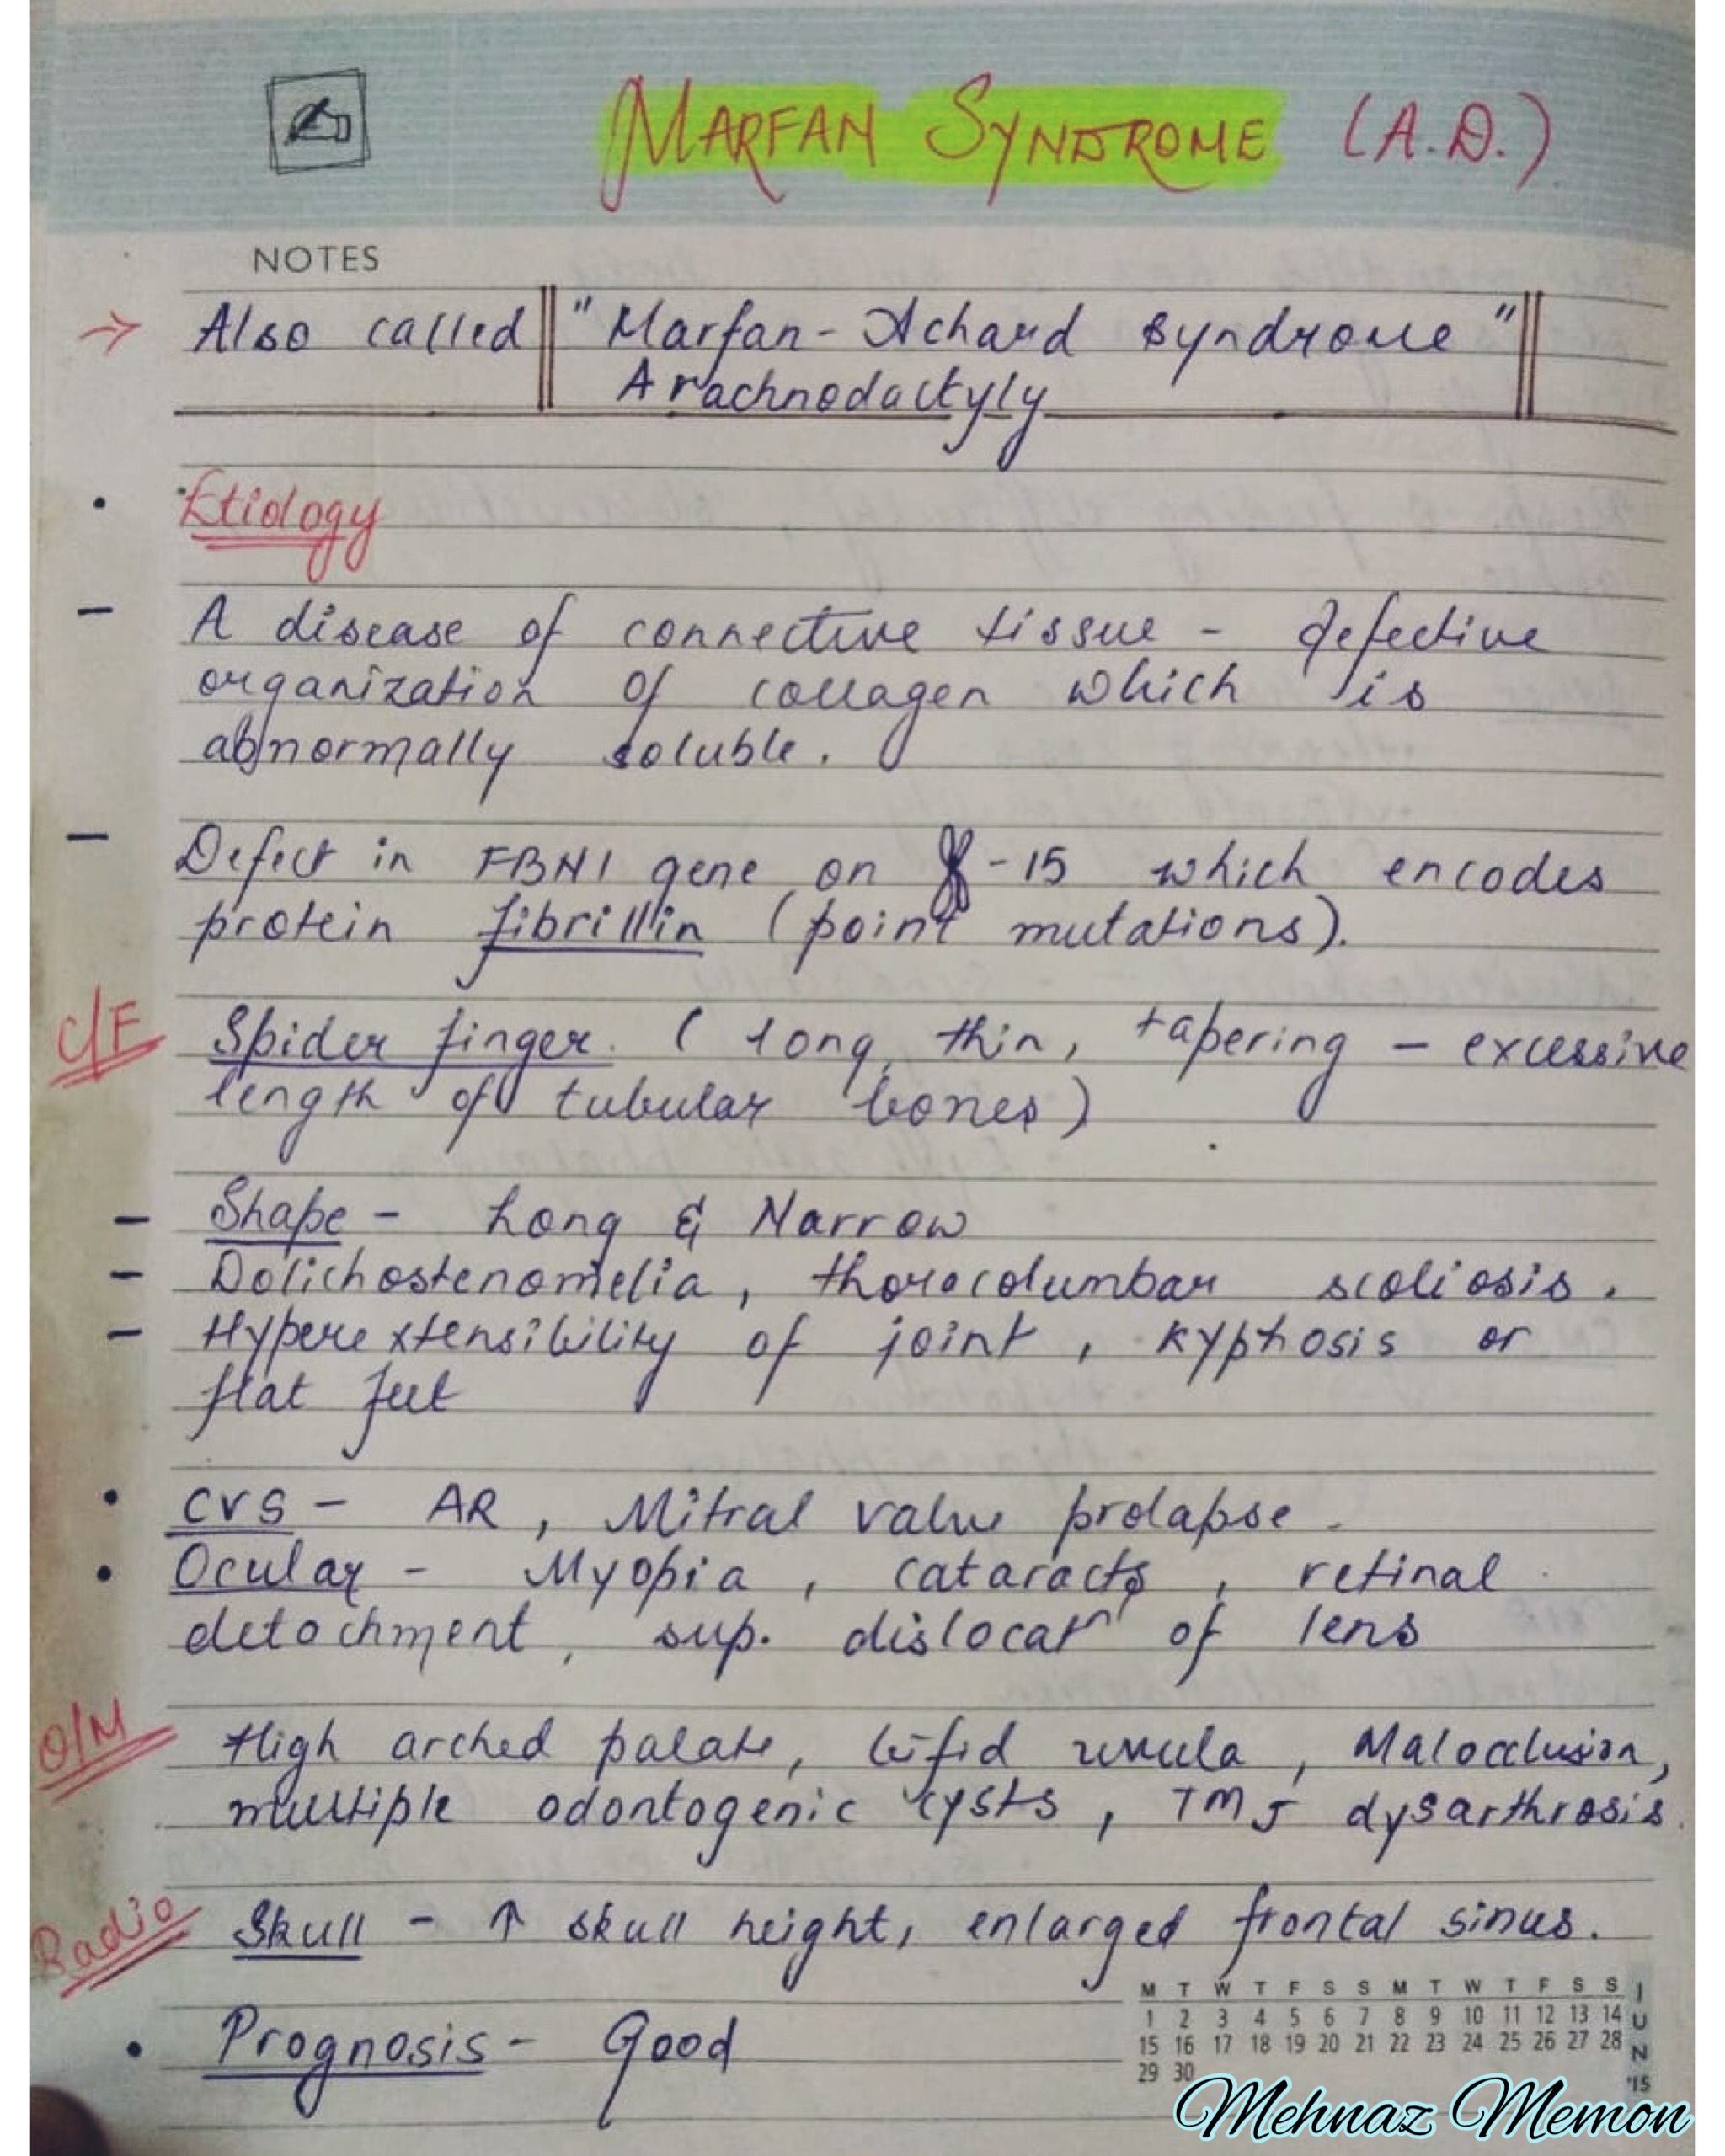 MARFAN SYNDROME (A.D.)
NOTES
→ Also called "Marfan-Achard syndrome"
Arachnodactyly
• Etiology
- A disease of connective tissue - defective
organization of collagen which is
abnormally soluble.
- Defect in FBN1 gene on -15 which encodes
protein fibrillin (point mutations).
C/F Spider finger. (long, thin, tapering - excessive
length of tubular bones)
- Shape - Long & Narrow
- Dolichostenomelia, thoracolumbar scoliosis.
- Hyperextensibility of joint, kyphosis or
flat feet
• CVS - AR, Mitral valve prolapse.
• Ocular - Myopia, cataracts, retinal
detachment, sup. dislocatⁿ of lens
O/M High arched palate, bifid uvula, Malocclusion,
multiple odontogenic cysts, TMJ dysarthrosis.
Radio Skull - ↑ skull height, enlarged frontal sinus.
• Prognosis - Good
M T W T F S S M T W T F S S
1 2 3 4 5 6 7 8 9 10 11 12 13 14
15 16 17 18 19 20 21 22 23 24 25 26 27 28
29 30
JUN '15
Mehnaz Memon